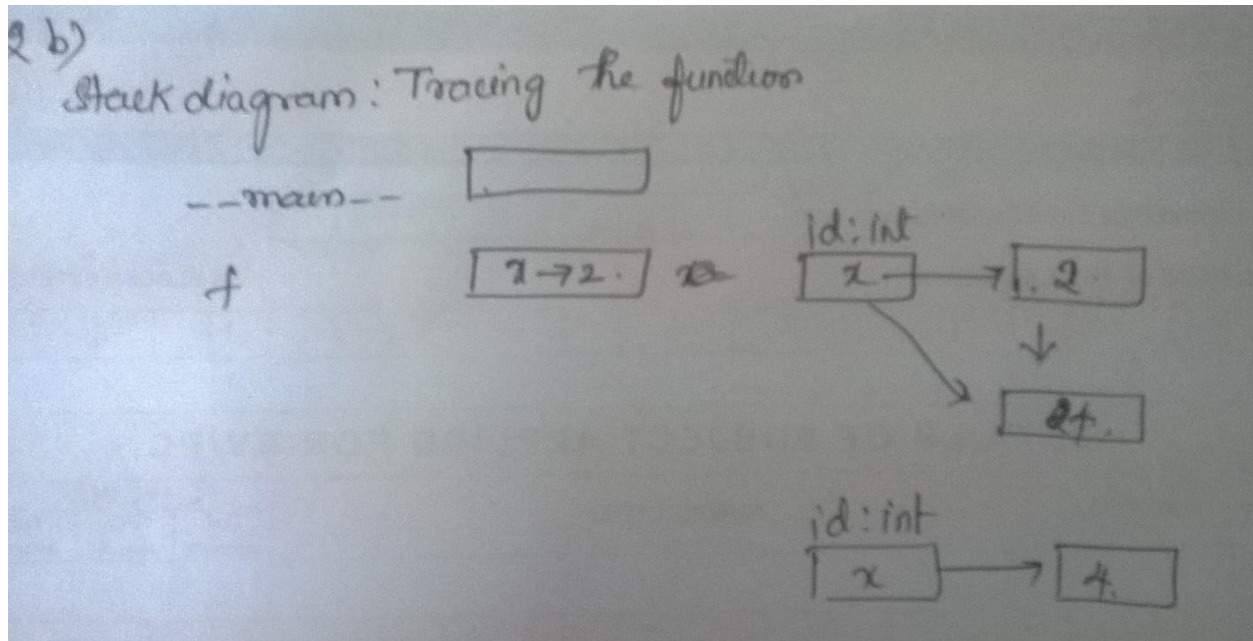 2 b)
Stack diagram: Tracing the function
--main--
id: int
f x→2. x 2
4.
id: int
x 4.